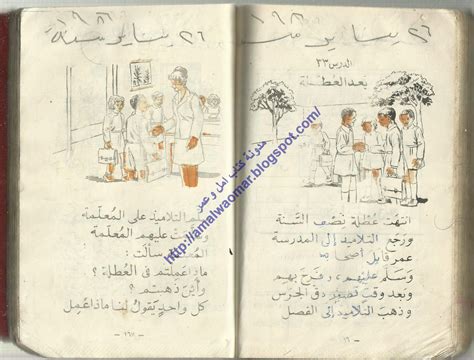 ٢٦ يناير
الدرس ٢٣
بعد العطلة
انتهت عطلة نصف السنة
ورجع التلاميذ إلى المدرسة
عمر قابل
وسلم عليهم، وفرح بهم
وبعد وقت قصير دق الجرس
وذهب التلاميذ إلى الفصل
٢٦ يناير سنة
التلاميذ على المعلمة
عليهم المعلمة
سألت :
ماذا عملتم في العطلة ؟
وأين ذهبتم ؟
كل واحد يقول لنا ماذا عمل
- ١٦٧ -
مدونة كتب امل و عمر
http://amalwaomar.blogspot.com/